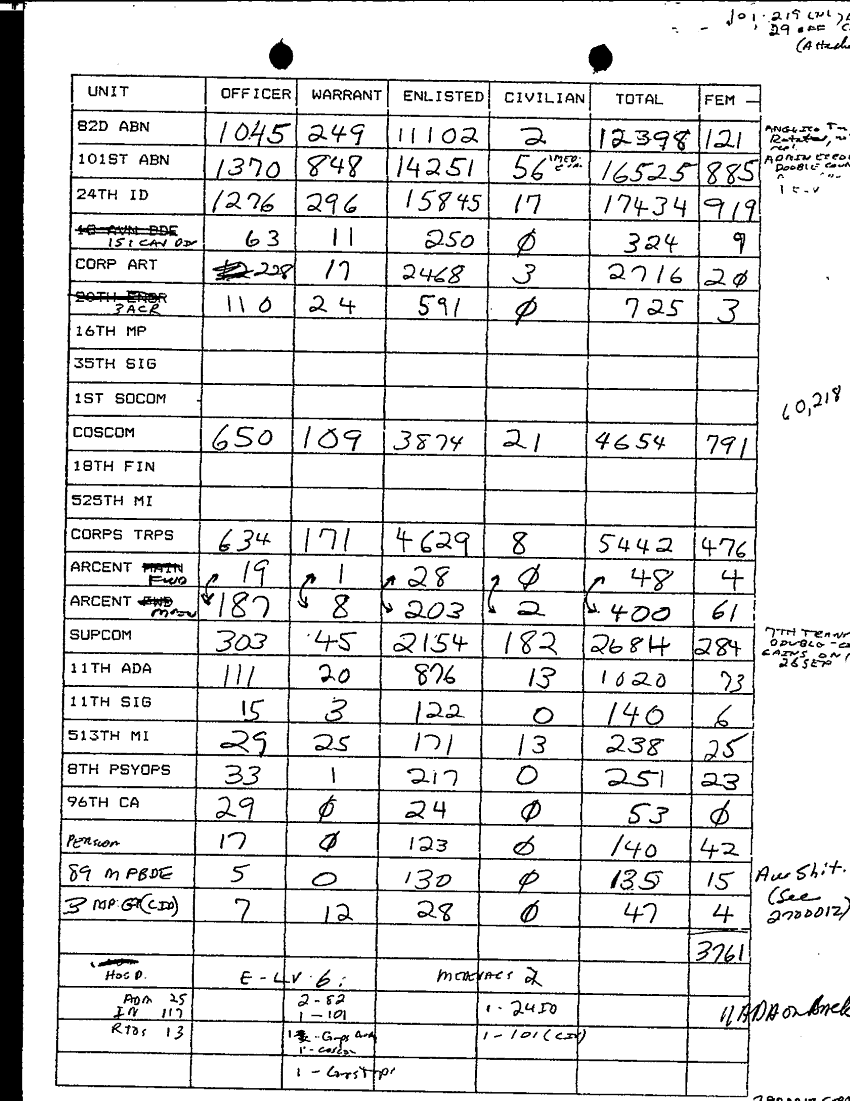 101.219
29 OFF
(Attach
UNIT OFFICER WARRANT ENLISTED CIVILIAN TOTAL FEM -
82D ABN 1045 249 11102 2 12398 121
101ST ABN 1370 848 14251 56 16525 885
24TH ID 1276 296 15845 17 17434 919
18 AVN BDE
63 11 250 Ø 324 9
CORP ART 228 17 2468 3 2716 20
20TH ENGR
3 ACR 110 24 591 Ø 725 3
16TH MP
35TH SIG
1ST SOCOM
60,218
COSCOM 650 109 3874 21 4654 791
18TH FIN
525TH MI
CORPS TRPS 634 171 4629 8 5442 476
ARCENT MAIN FWD 19 1 28 Ø 48 4
ARCENT FWD MAIN 187 8 203 2 400 61
SUPCOM 303 45 2154 182 2684 284
11TH ADA 111 20 876 13 1020 73
11TH SIG 15 3 122 0 140 6
513TH MI 29 25 171 13 238 25
8TH PSYOPS 33 1 217 0 251 23
96TH CA 29 Ø 24 Ø 53 Ø
17 Ø 123 Ø 140 42
89 MPBDE 5 0 130 Ø 135 15
Aw Shit.
(See
2700012)
3 MP GP (CID) 7 12 28 Ø 47 4
3761
HOSP. E-LV 6: MEDEVACS 2
ADM 25 2-82
IN 117 1-101
RTDS 13 1-101 (CIV)
1-COSCOM
11 ADA on Back